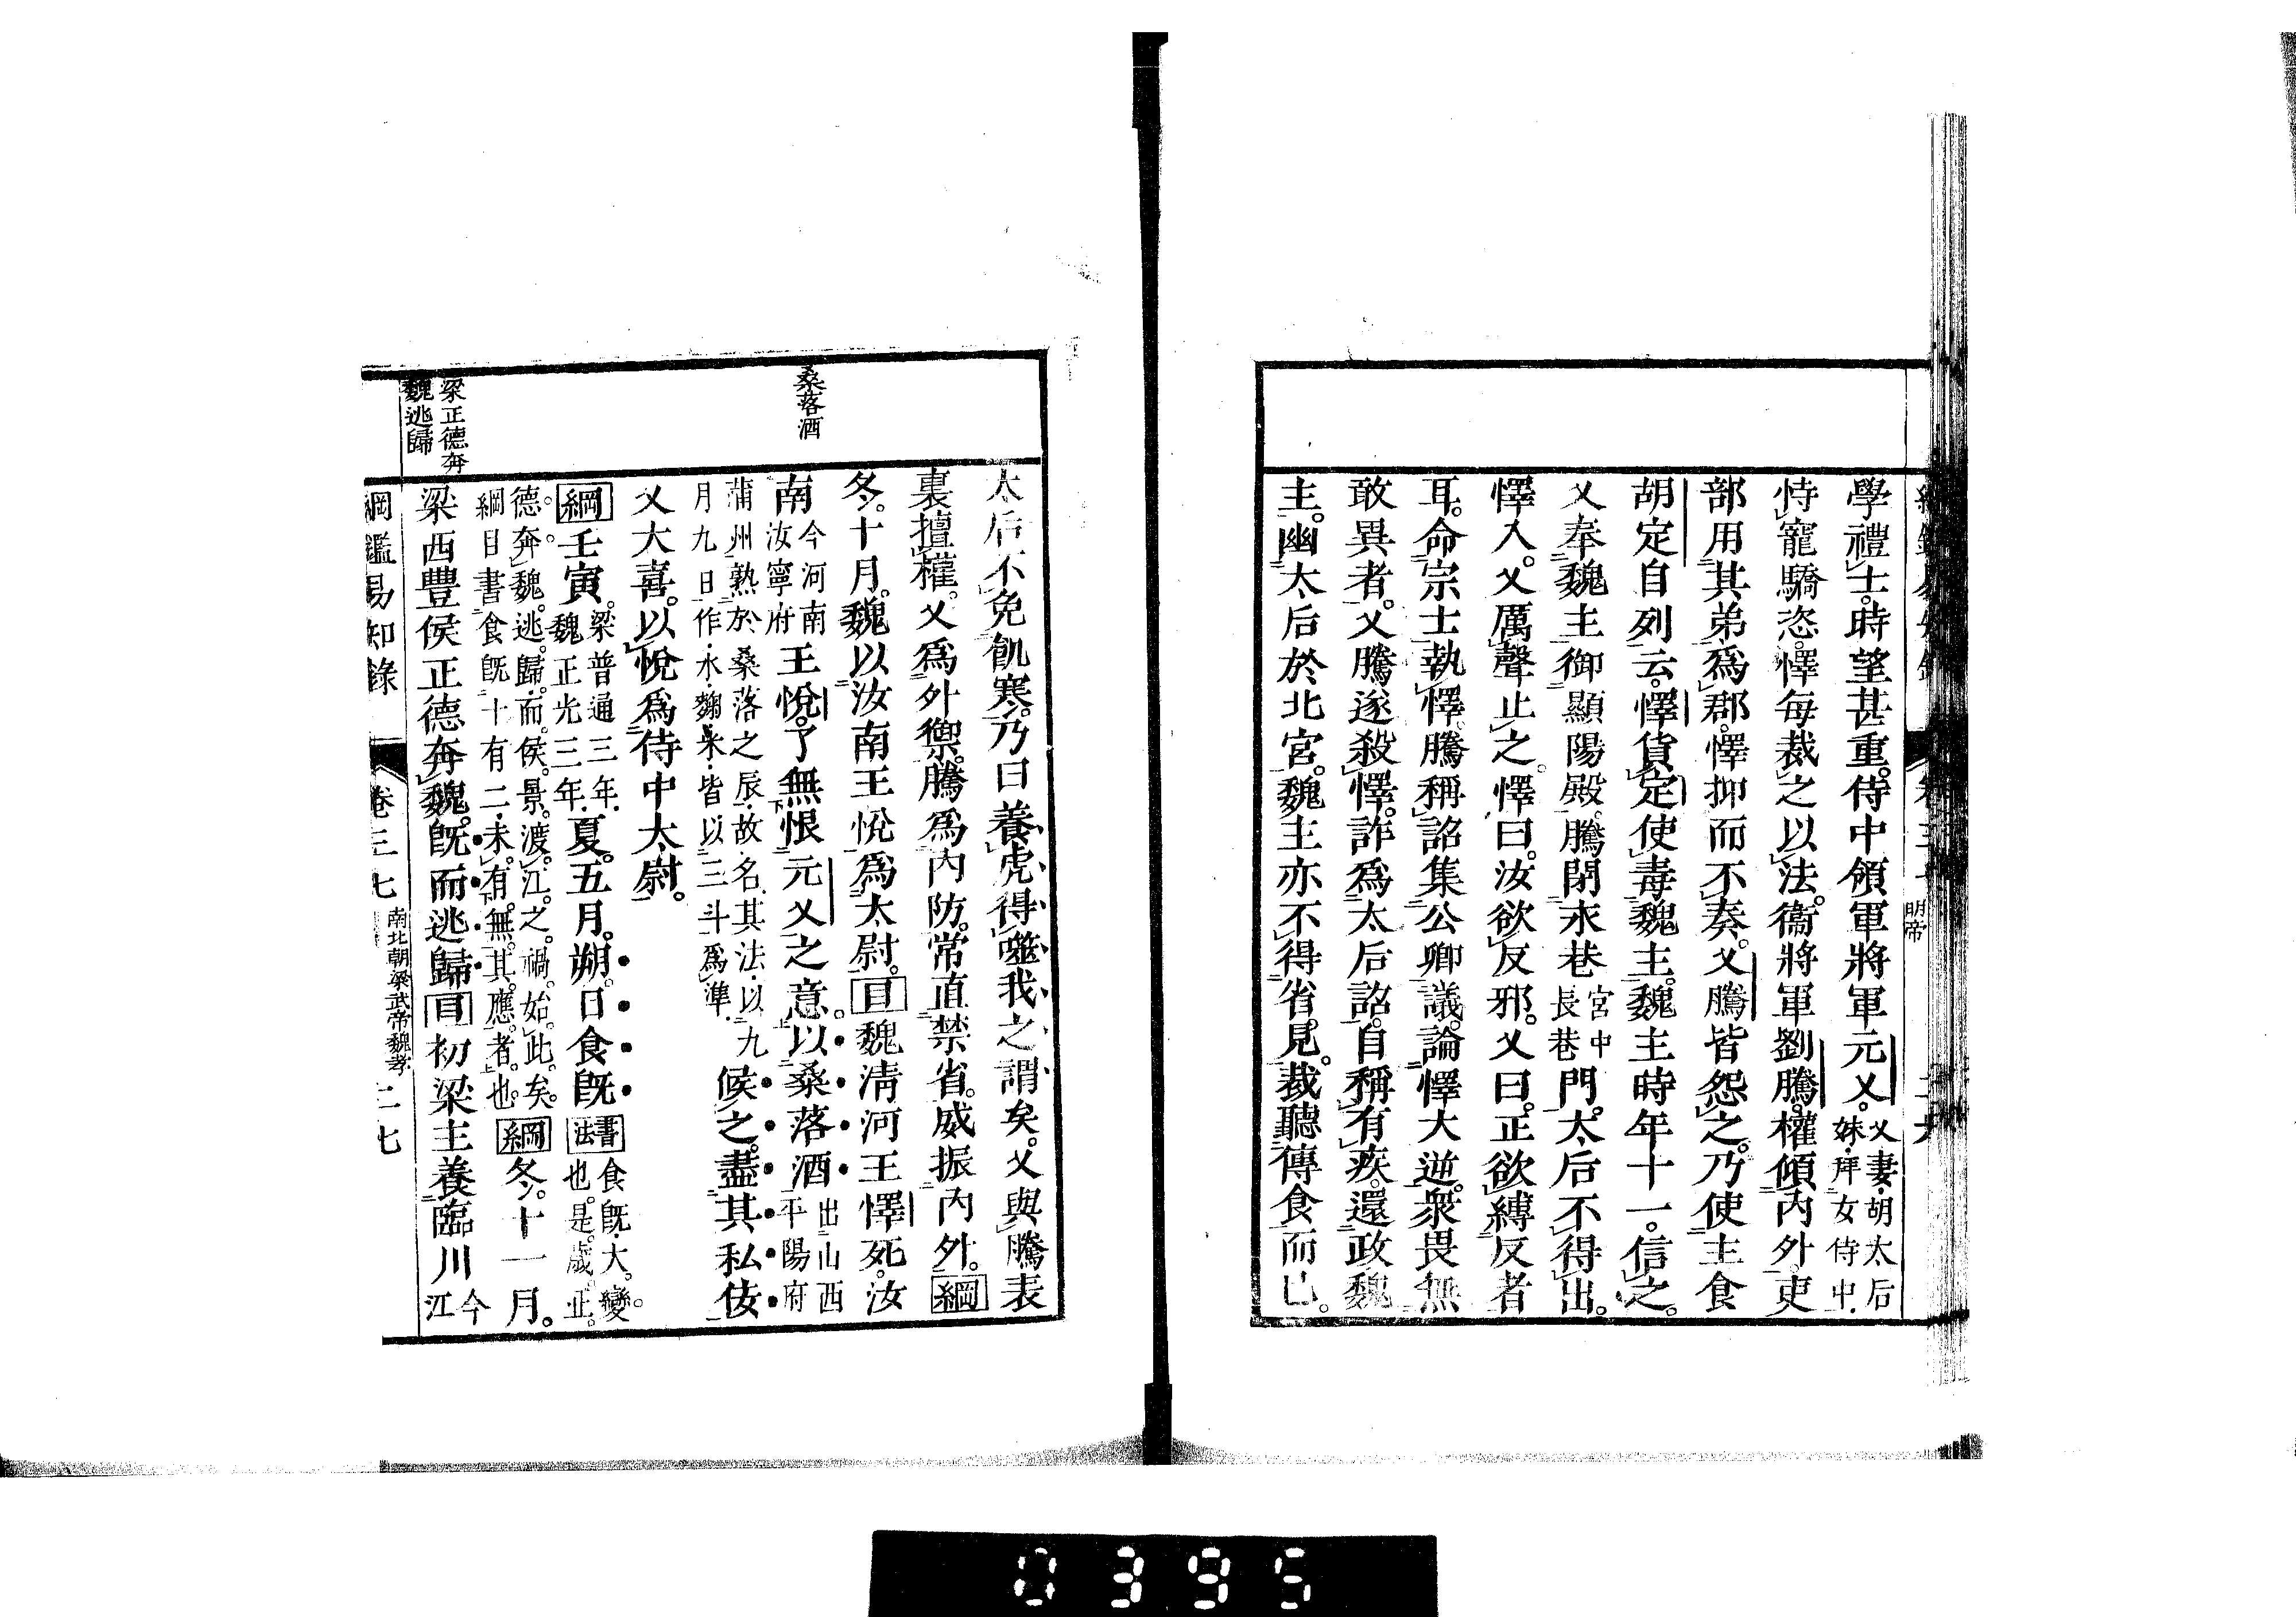 學禮士。時望甚重。侍中領軍將軍元乂。乂妻、胡太后妹、拜女侍中、
恃寵驕恣。懌每裁之以法。衞將軍劉騰。權傾內外。吏
部用其弟爲郡。懌抑而不奏。乂騰皆怨之。乃使主食
胡定自列云。懌貨定使毒魏主。魏主時年十一。信之。
乂奉魏主御顯陽殿。騰閉永巷宮中長巷門。太后不得出。
懌入。乂厲聲止之。懌曰。汝欲反邪。乂曰。正欲縛反者
耳。命宗士執懌。騰稱詔集公卿議。論懌大逆。衆畏無
敢異者。乂騰遂殺懌。詐爲太后詔。自稱有疾。還政魏
主。幽太后於北宮。魏主亦不得省見。裁聽傳食而已。
明帝
太后不免飢寒。乃曰養虎得噬我之謂矣。乂與騰表
裏擅權。乂爲外禦。騰爲內防。常直禁省。威振內外。綱
冬。十月。魏以汝南王悅爲太尉。目魏淸河王懌死。汝
南今河南汝寧府王悅。了無恨元乂之意。以桑落酒出山西平陽府
蒲州熟於桑落之辰、故名、其法、以九月九日作、水、麴、米、皆以三斗爲準、候之。盡其私佞
乂大喜。以悅爲侍中太尉。
綱壬寅。梁普通三年、魏正光三年、夏。五月。朔。日食旣書法食旣、大。變也。是。歲。正。
德。奔。魏。逃。歸。而。侯。景。渡。江。之。禍。始。此。矣。綱目書食旣十有二、未。有。無。其。應。者。也。綱冬。十一月。
梁西豐侯正德奔魏。旣而逃歸目初梁主養臨川今江
桑落酒
梁正德奔
魏逃歸
綱鑑易知錄
卷三七
南北朝梁武帝魏孝
二七
0395